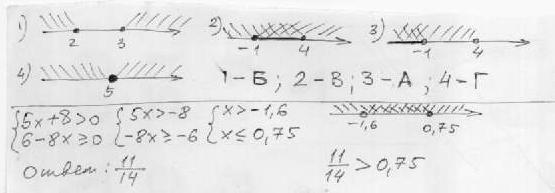 1) 2 3 2) -1 4 3) -1 4
4) 5 1-Б; 2-В; 3-А; 4-Г
{5x+8>0 {5x>-8 {x>-1,6
{6-8x≥0 {-8x≥-6 {x≤0,75
-1,6 0,75
Ответ: 11/14 11/14 > 0,75